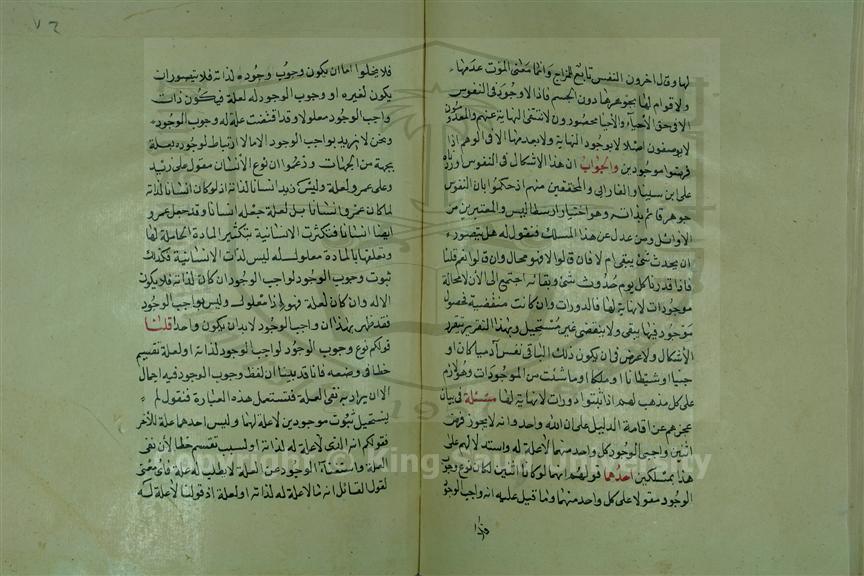 لها وقال اخرون النفس تابع للمزاج وانما معنى الموت عدمها
ولا قوام لها بجوهرها دون الجسم فاذا لا وجود فى النفوس
الا فى حق الاحياء والاحيا محصورون ولا تنتفى النهاية عنهم والمعدومون
لا يوصفون اصلا لا بوجود النهاية ولا بعدمها الا فى الوهم اذا
فرضوا موجودين والجواب ان هذا الاشكال فى النفوس اوردناه
على ابن سينا والفارابى والمحققين منهم اذ حكموا بان النفس
جوهر قائم بذاته وهو اختيار ارسطاليس والمعتبرين من
الاوائل ومن عدل عن هذا المسلك فنقول له هل يتصور
ان يحدث شئ يبقى ام لا فان قالوا لا فهو محال وان قالوا نعم قلنا
فاذا قدرنا كل يوم حدوث شئ وبقائه اجتمع الى الآن لا محالة
موجودات لا نهاية لها فالدورات وان كانت منقضية فحصول
موجود فيها يبقى ولا ينقضى غير مستحيل وبهذا التقرير يتقرر
الاشكال ولا غرض فى ان يكون ذلك الباقى نفس آدمى كان او
جنيا او شيطانا او ملكا او ما شئت من الموجودات وهو لازم
على كل مذهب لهم اذ اثبتوا دورات لا نهاية لها مسئلة فى بيان
عجزهم عن اقامة الدليل على ان الله واحد وانه لا يجوز فرض
اثنين واجبى الوجود كل واحد منهما لا علة له واستدلالهم على
هذا بمسلكين احدهما قولهم انهما لو كانا اثنين لكان نوع وجوب
الوجود مقولا على كل واحد منهما وما قيل عليه انه واجب الوجود
فلا يخلوا اما ان يكون وجوب وجوده لذاته فلا يتصور ان
يكون لغيره او وجوب الوجود له لعلة فيكون ذات
واجب الوجود معلولا وقد اقتضت علة له وجوب الوجود
ونحن لا نريد بواجب الوجود الا ما لا ارتباط لوجوده بعلة
بجهة من الجهات وزعموا ان نوع الانسان مقول على زيد
وعلى عمرو لعلة وليس زيد انسانا لذاته اذ لو كان انسانا لذاته
لما كان عمرو انسانا بل لعلة جعله انسانا وقد جعل عمرو
ايضا انسانا فتكثرت الانسانية بتكثير المادة الحاملة لها
وتعلقها بالمادة معلول له ليس لذات الانسانية فكذلك
ثبوت وجوب الوجود لواجب الوجود ان كان لذاته فلا يكون
الا له وان كان لعلة فهو اذا معلول وليس بواجب الوجود
فقد ظهر بهذا ان واجب الوجود لابد ان يكون واحدا قلنا
قولكم نوع وجوب الوجود لواجب الوجود لذاته او لعلة تقسيم
خطا فى وضعه فانا قد بينا ان لفظ وجوب الوجود فيه اجمال
الا ان يراد به نفى العلة فتستعمل هذه العبارة فنقول لم
يستحيل ثبوت موجودين لا علة لهما وليس احدهما علة للآخر
فقولكم ان الذى لا علة له لذاته او لسبب تقسيم خطا لان نفى
العلة واستغناء الوجود عن العلة لا يطلب له علة فاى معنى
لقول القائل ان ما لا علة له لذاته او لعلة اذ قولنا لا علة له